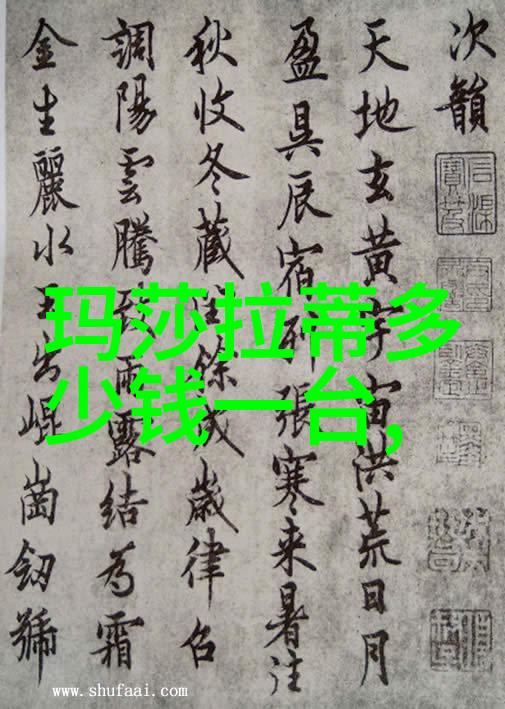 次韻
天地玄黄宇宙洪荒日月
盈昃辰宿列張寒来暑往
秋收冬藏閏餘成歲律召
調陽雲騰致雨露結為霜
金生麗水玉出崐崗劒號
玛莎拉蒂多
少钱一台,
www.shufaai.com